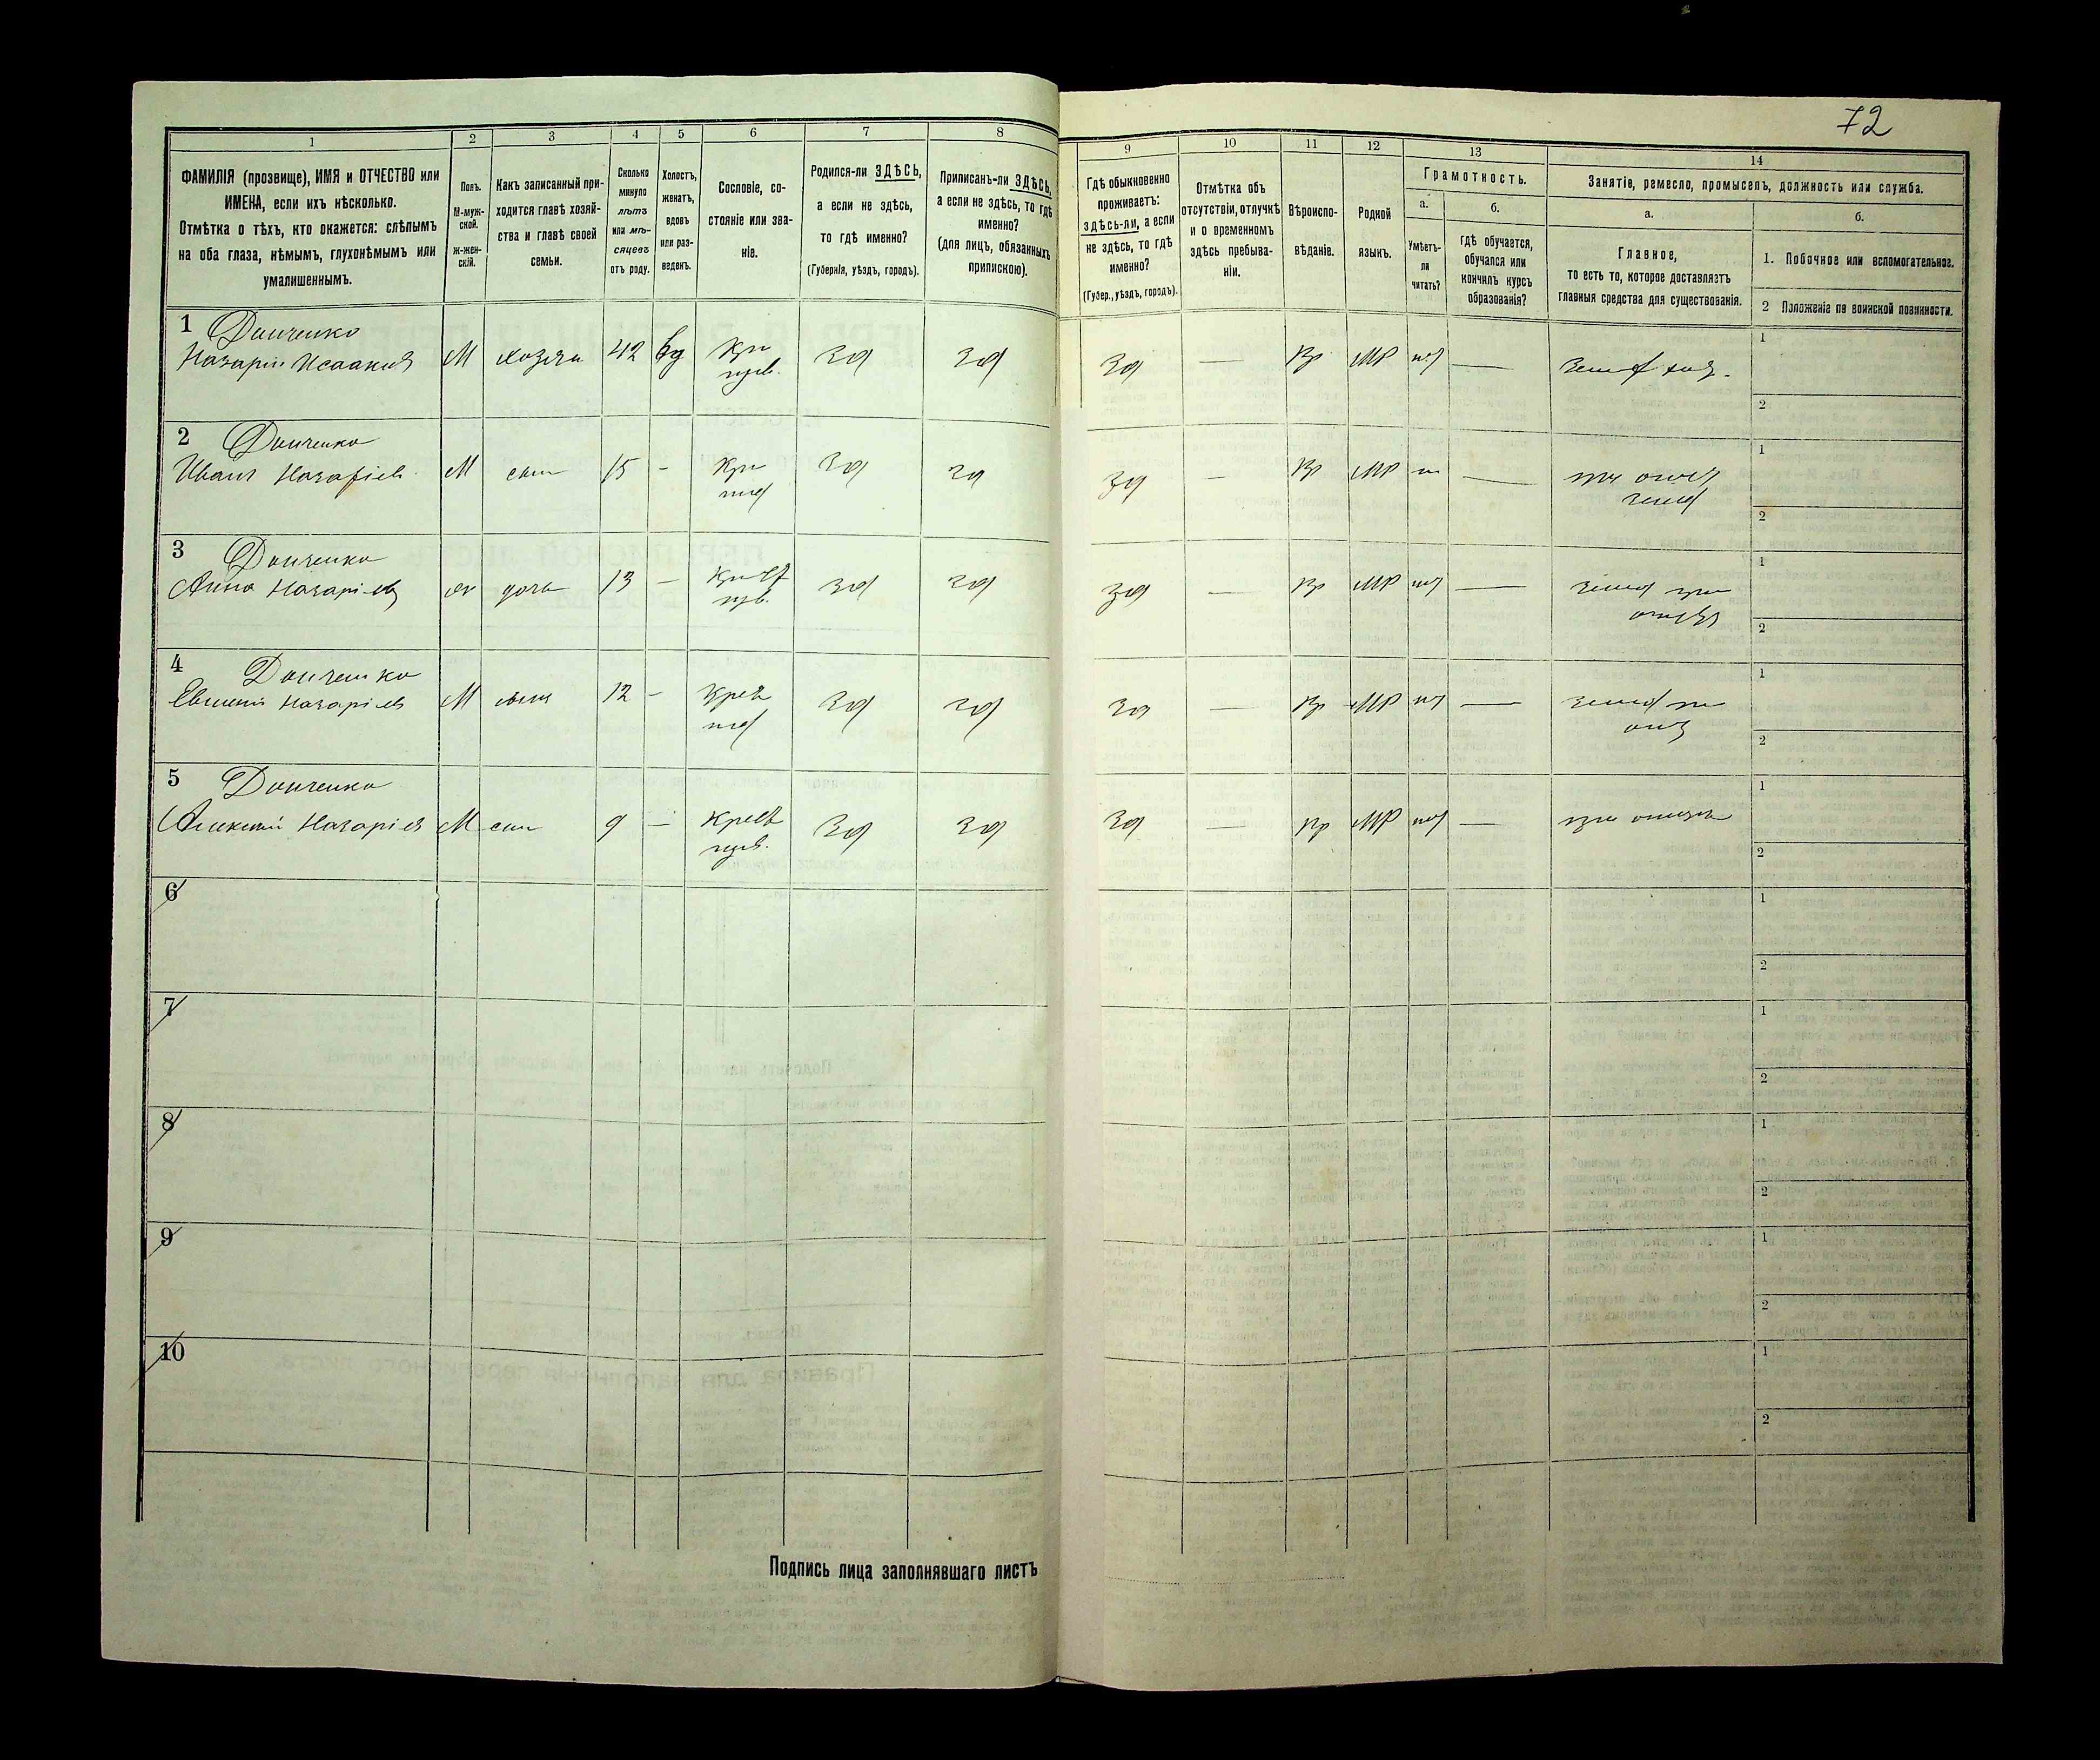 72
1
2
3
4
5
6
7
8
9
10
11
12
13
14
ФАМИЛІЯ (прозвище), ИМЯ и ОТЧЕСТВО или
ИМЕНА, если ихъ нѣсколько.
Отмѣтка о тѣхъ, кто окажется: слѣпымъ
на оба глаза, нѣмымъ, глухонѣмымъ или
умалишеннымъ.
Полъ.
М-муж-
ской.
Ж-жен-
скій.
Какъ записанный при-
ходится главѣ хозяй-
ства и главѣ своей
семьи.
Сколько
минуло
лѣтъ
или мѣ-
сяцевъ
отъ роду.
Холостъ,
женатъ,
вдовъ
или раз-
веденъ.
Сословіе, со-
стояніе или зва-
ніе.
Родился-ли ЗДѢСЬ,
а если не здѣсь,
то гдѣ именно?
(Губернія, уѣздъ, городъ).
Приписанъ-ли ЗДѢСЬ,
а если не здѣсь, то гдѣ
именно?
(для лицъ, обязанныхъ
припискою).
Гдѣ обыкновенно
проживаетъ:
здѣсь-ли, а если
не здѣсь, то гдѣ
именно?
(Губер., уѣздъ, городъ).
Отмѣтка объ
отсутствіи, отлучкѣ
и о временномъ
здѣсь пребыва-
ніи.
Вѣроиспо-
вѣданіе.
Родной
языкъ.
Грамотность.
а.
Умѣетъ-
ли
читать?
б.
гдѣ обучается,
обучался или
кончилъ курсъ
образованія?
Занятіе, ремесло, промыселъ, должность или служба.
а.
Главное,
то есть то, которое доставляетъ
главныя средства для существованія.
б.
1. Побочное или вспомогательное.
2 Положеніе по воинской повинности.
1 Донченко
Назарій Исаакіев М хозяин 42 вд Кр зд зд зд — Пр МР нет — земл хоз.
1
2
2 Донченко
Иванъ Назаріев М сын 15 - Кр зд зд зд — Пр МР — при отцѣ
земл
1
2
3 Донченко
Анна Назаріев ж дочь 13 — зд зд зд — Пр МР нет — земл при
отцѣ
1
2
4 Донченко
Евгеній Назаріев М сын 12 - Крест зд зд зд — Пр МР нет — земл при
отц
1
2
5 Донченко
Алексѣй Назаріев М сын 9 — Крест зд зд зд — Пр МР нет — при отцѣ
1
2
6
1
2
7
1
2
8
1
2
9
1
2
10
1
2
Подпись лица заполнявшаго листъ